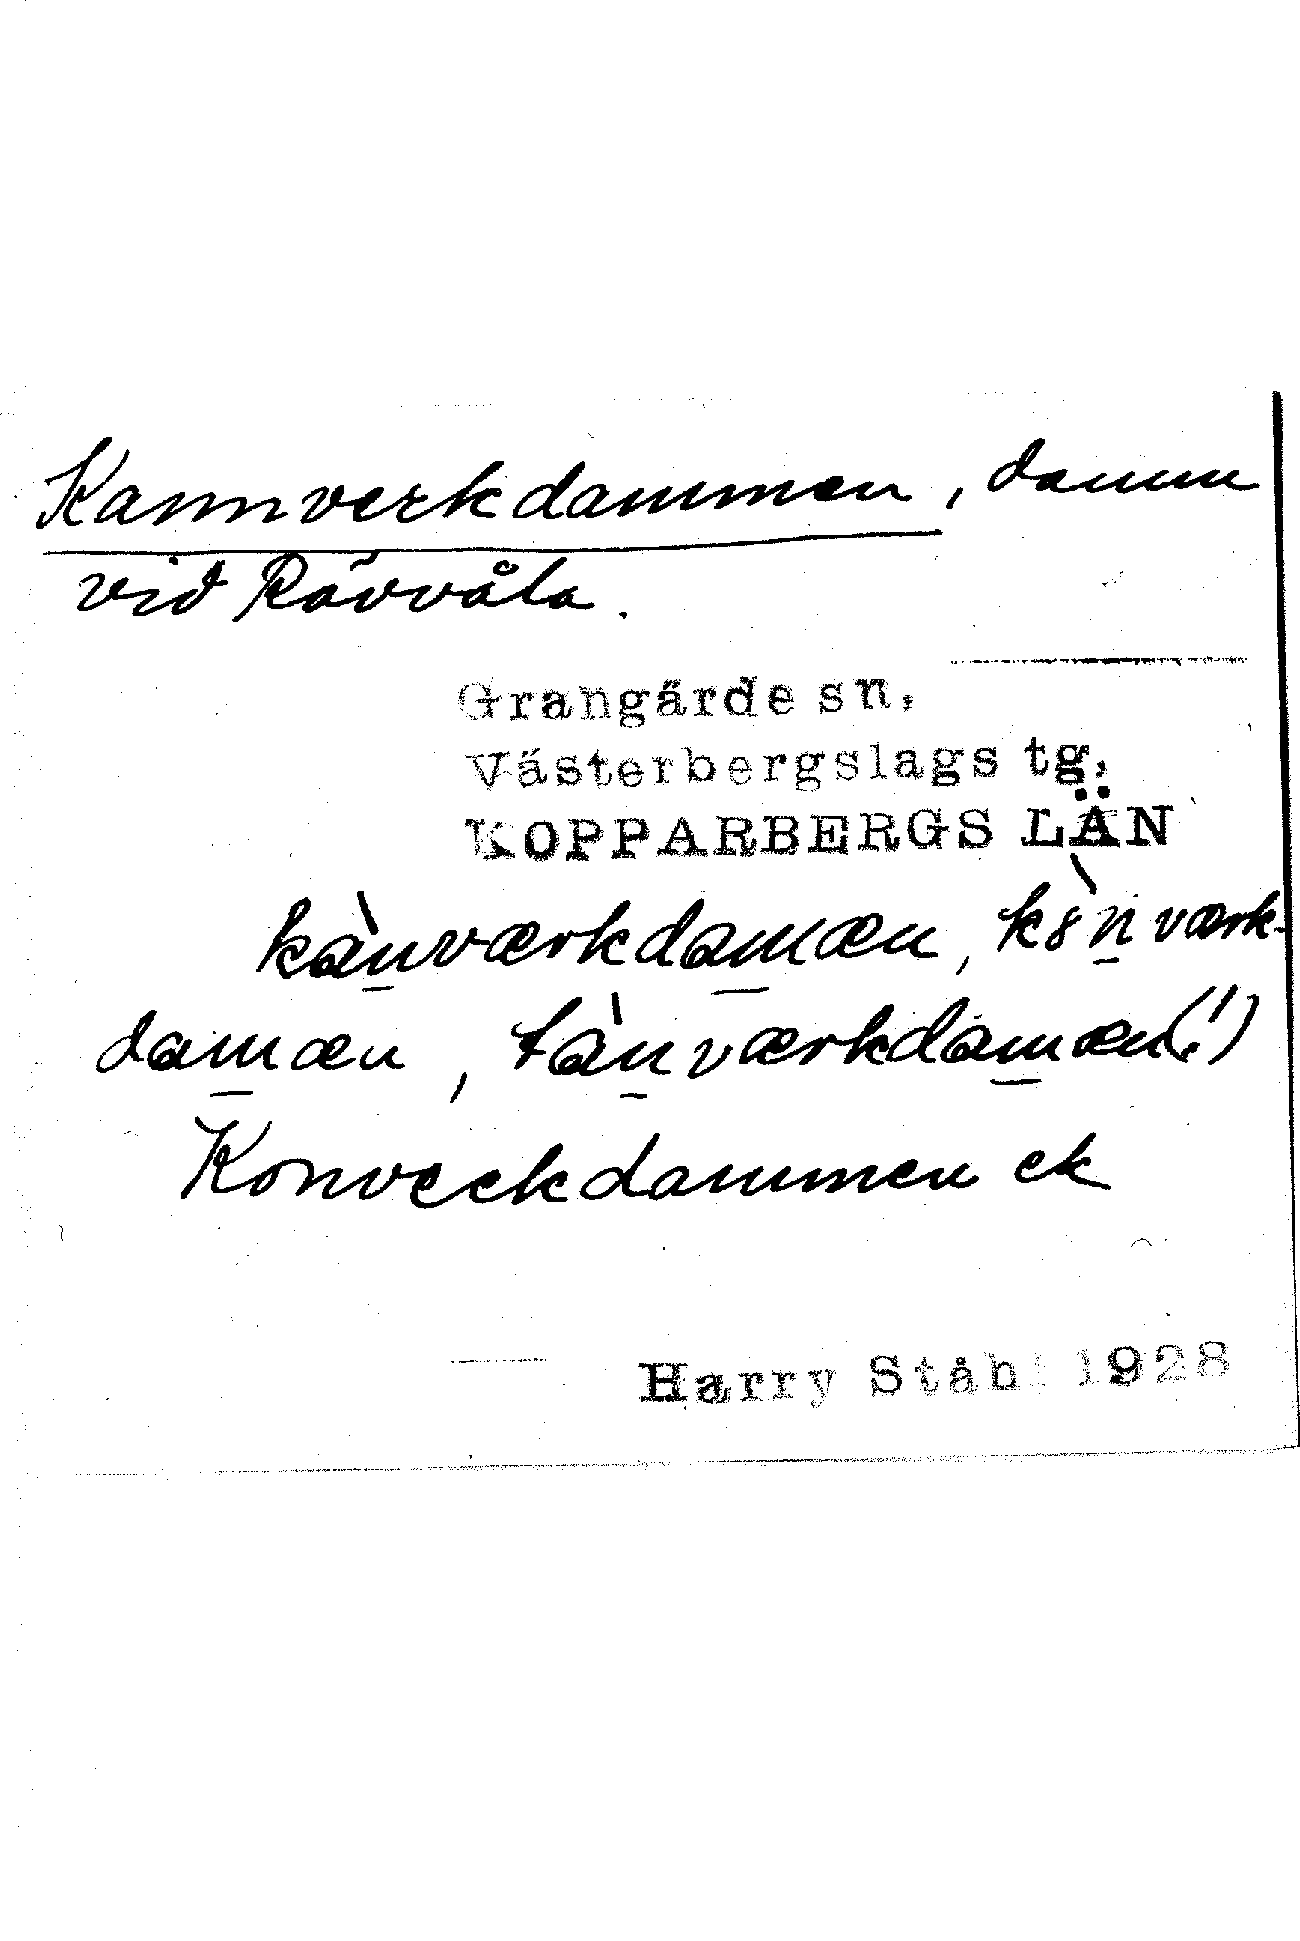 Kannverkdammen, damm
vid Rävvåla.
Grangärde sn,
Västerbergslags tg,
KOPPARBERGS LÄN
kànværkdamæn, kò̀nværk-
damæn, tànværkdamæn(!)
Konverkdammen ek
Harry Ståhl 1928